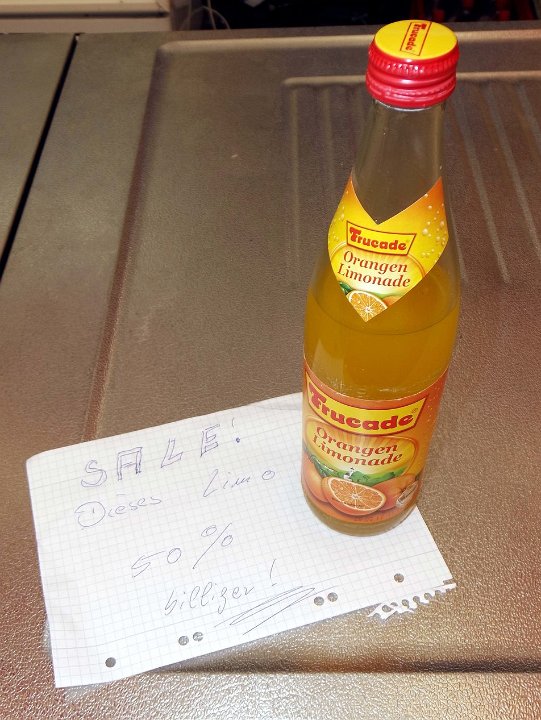 Trucade
Trucade
Orangen
Limonade
Trucade
Orangen
Limonade
SALE!
Dieses Limo
50%
billiger!